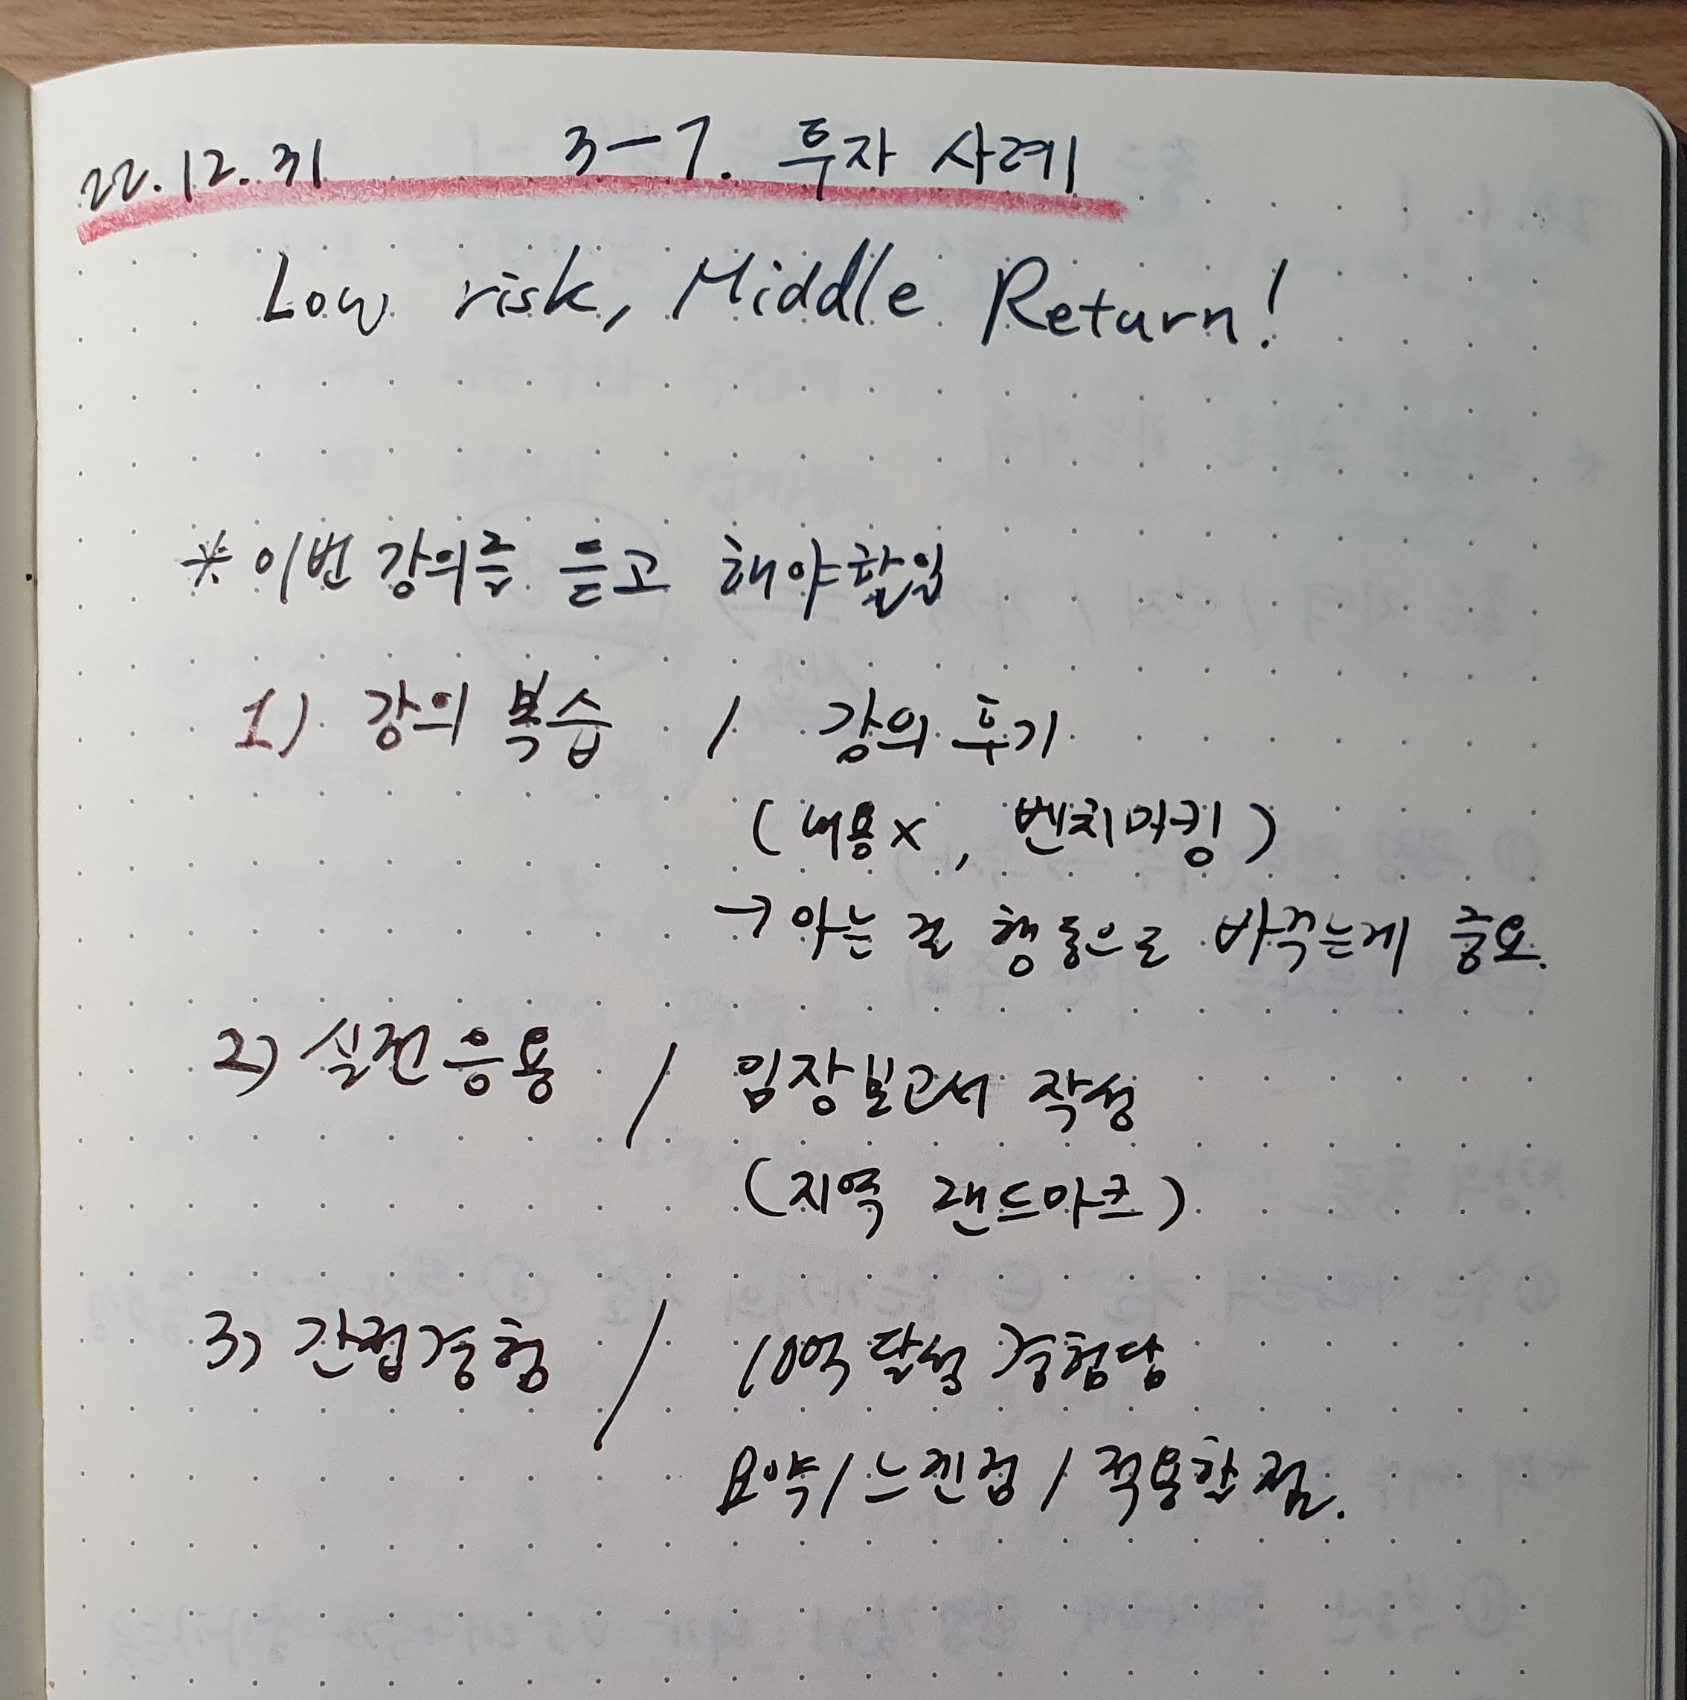 22.12.31 3-7. 투자 사례
Low risk, Middle Return!
* 이번 강의를 듣고 해야할일
1) 강의 복습 / 강의 후기
(내용x, 벤치마킹)
→ 아는 걸 행동으로 바꾸는게 중요.
2) 실전응용 / 임장보고서 작성
(지역 랜드마크)
3) 간접경험 / 10억 달성 경험담
요약/느낀점/적용할 점.